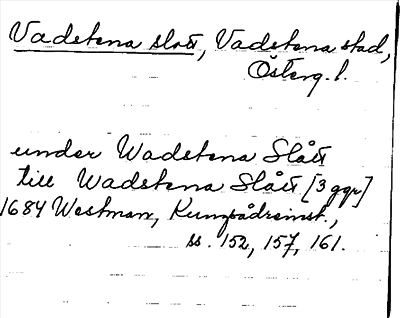 Vadstena slott, Vadstena stad,
Österg. l.
under Wadstena Slått
till Wadstena Slått [3 ggr]
1684 Westman, Kungsådreinst.,
ss. 152, 157, 161.